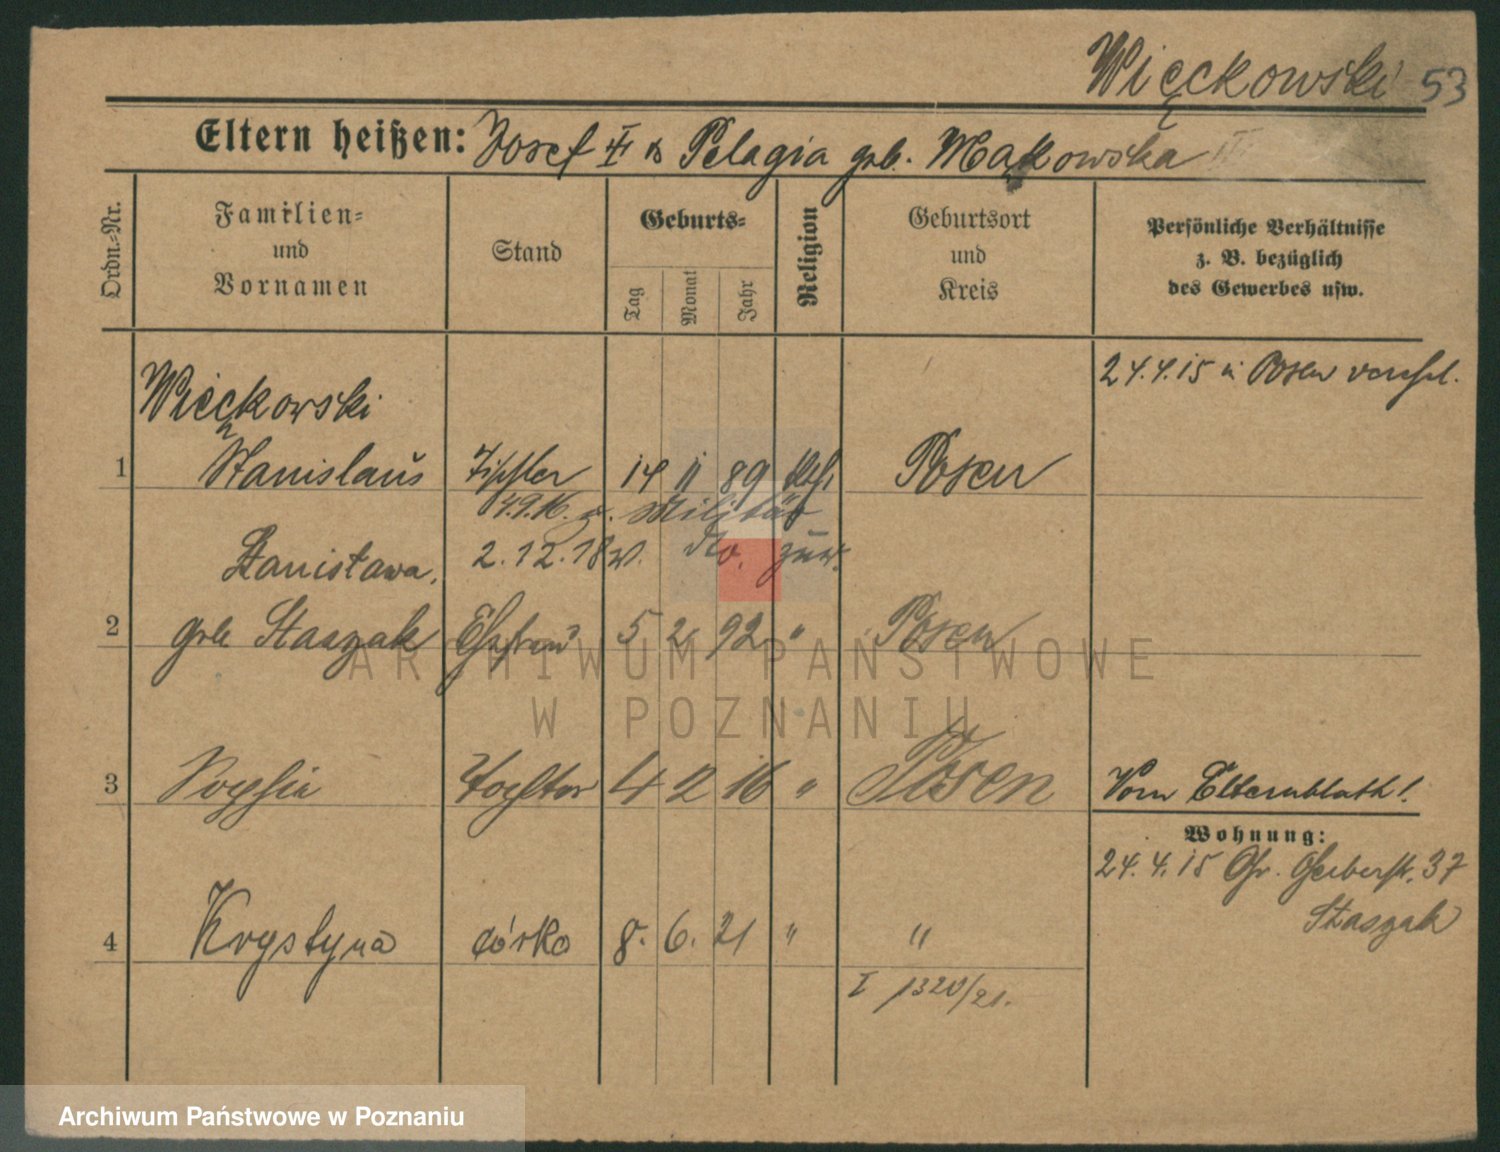 Więckowski 53
Eltern heißen: Josef & Pelagia geb. Mąkowska
Ordn.-Nr.
Familien-
und
Vornamen
Stand
Geburts-
Tag
Monat
Jahr
Religion
Geburtsort
und
Kreis
Persönliche Verhältnisse
z. B. bezüglich
des Gewerbes usw.
24.4.15 in Posen verehel.
Więckowski
1 Stanislaus Tischler 14 11 89 kath. Posen
4.9.16. z. Militär
Stanisława, 2.12.18 v. dto. zur.
2 geb. Staszak Ehefrau 5 2 92 " Posen
ARCHIWUM PAŃSTWOWE
W POZNANIU
3 Sophie Tochter 4 12 16 " Posen Vom Elternblatt!
Wohnung:
24.4.15 Gr. Gerberstr. 37
Staszak
4 Krystyna córka 8. 6. 21 " "
I 1320/21.
Archiwum Państwowe w Poznaniu